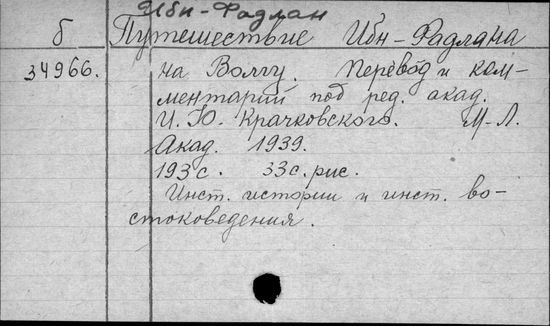 Ибн-Фадлан
б Путешествие Ибн-Фадлана
34966. на Волгу. Перевод и ком-
ментарий под ред. акад.
И. Ю. Крачковского. М-Л.
Акад. 1939.
193 с. 33 с. рис.
Инст. истории и инст. во-
стоковедения.